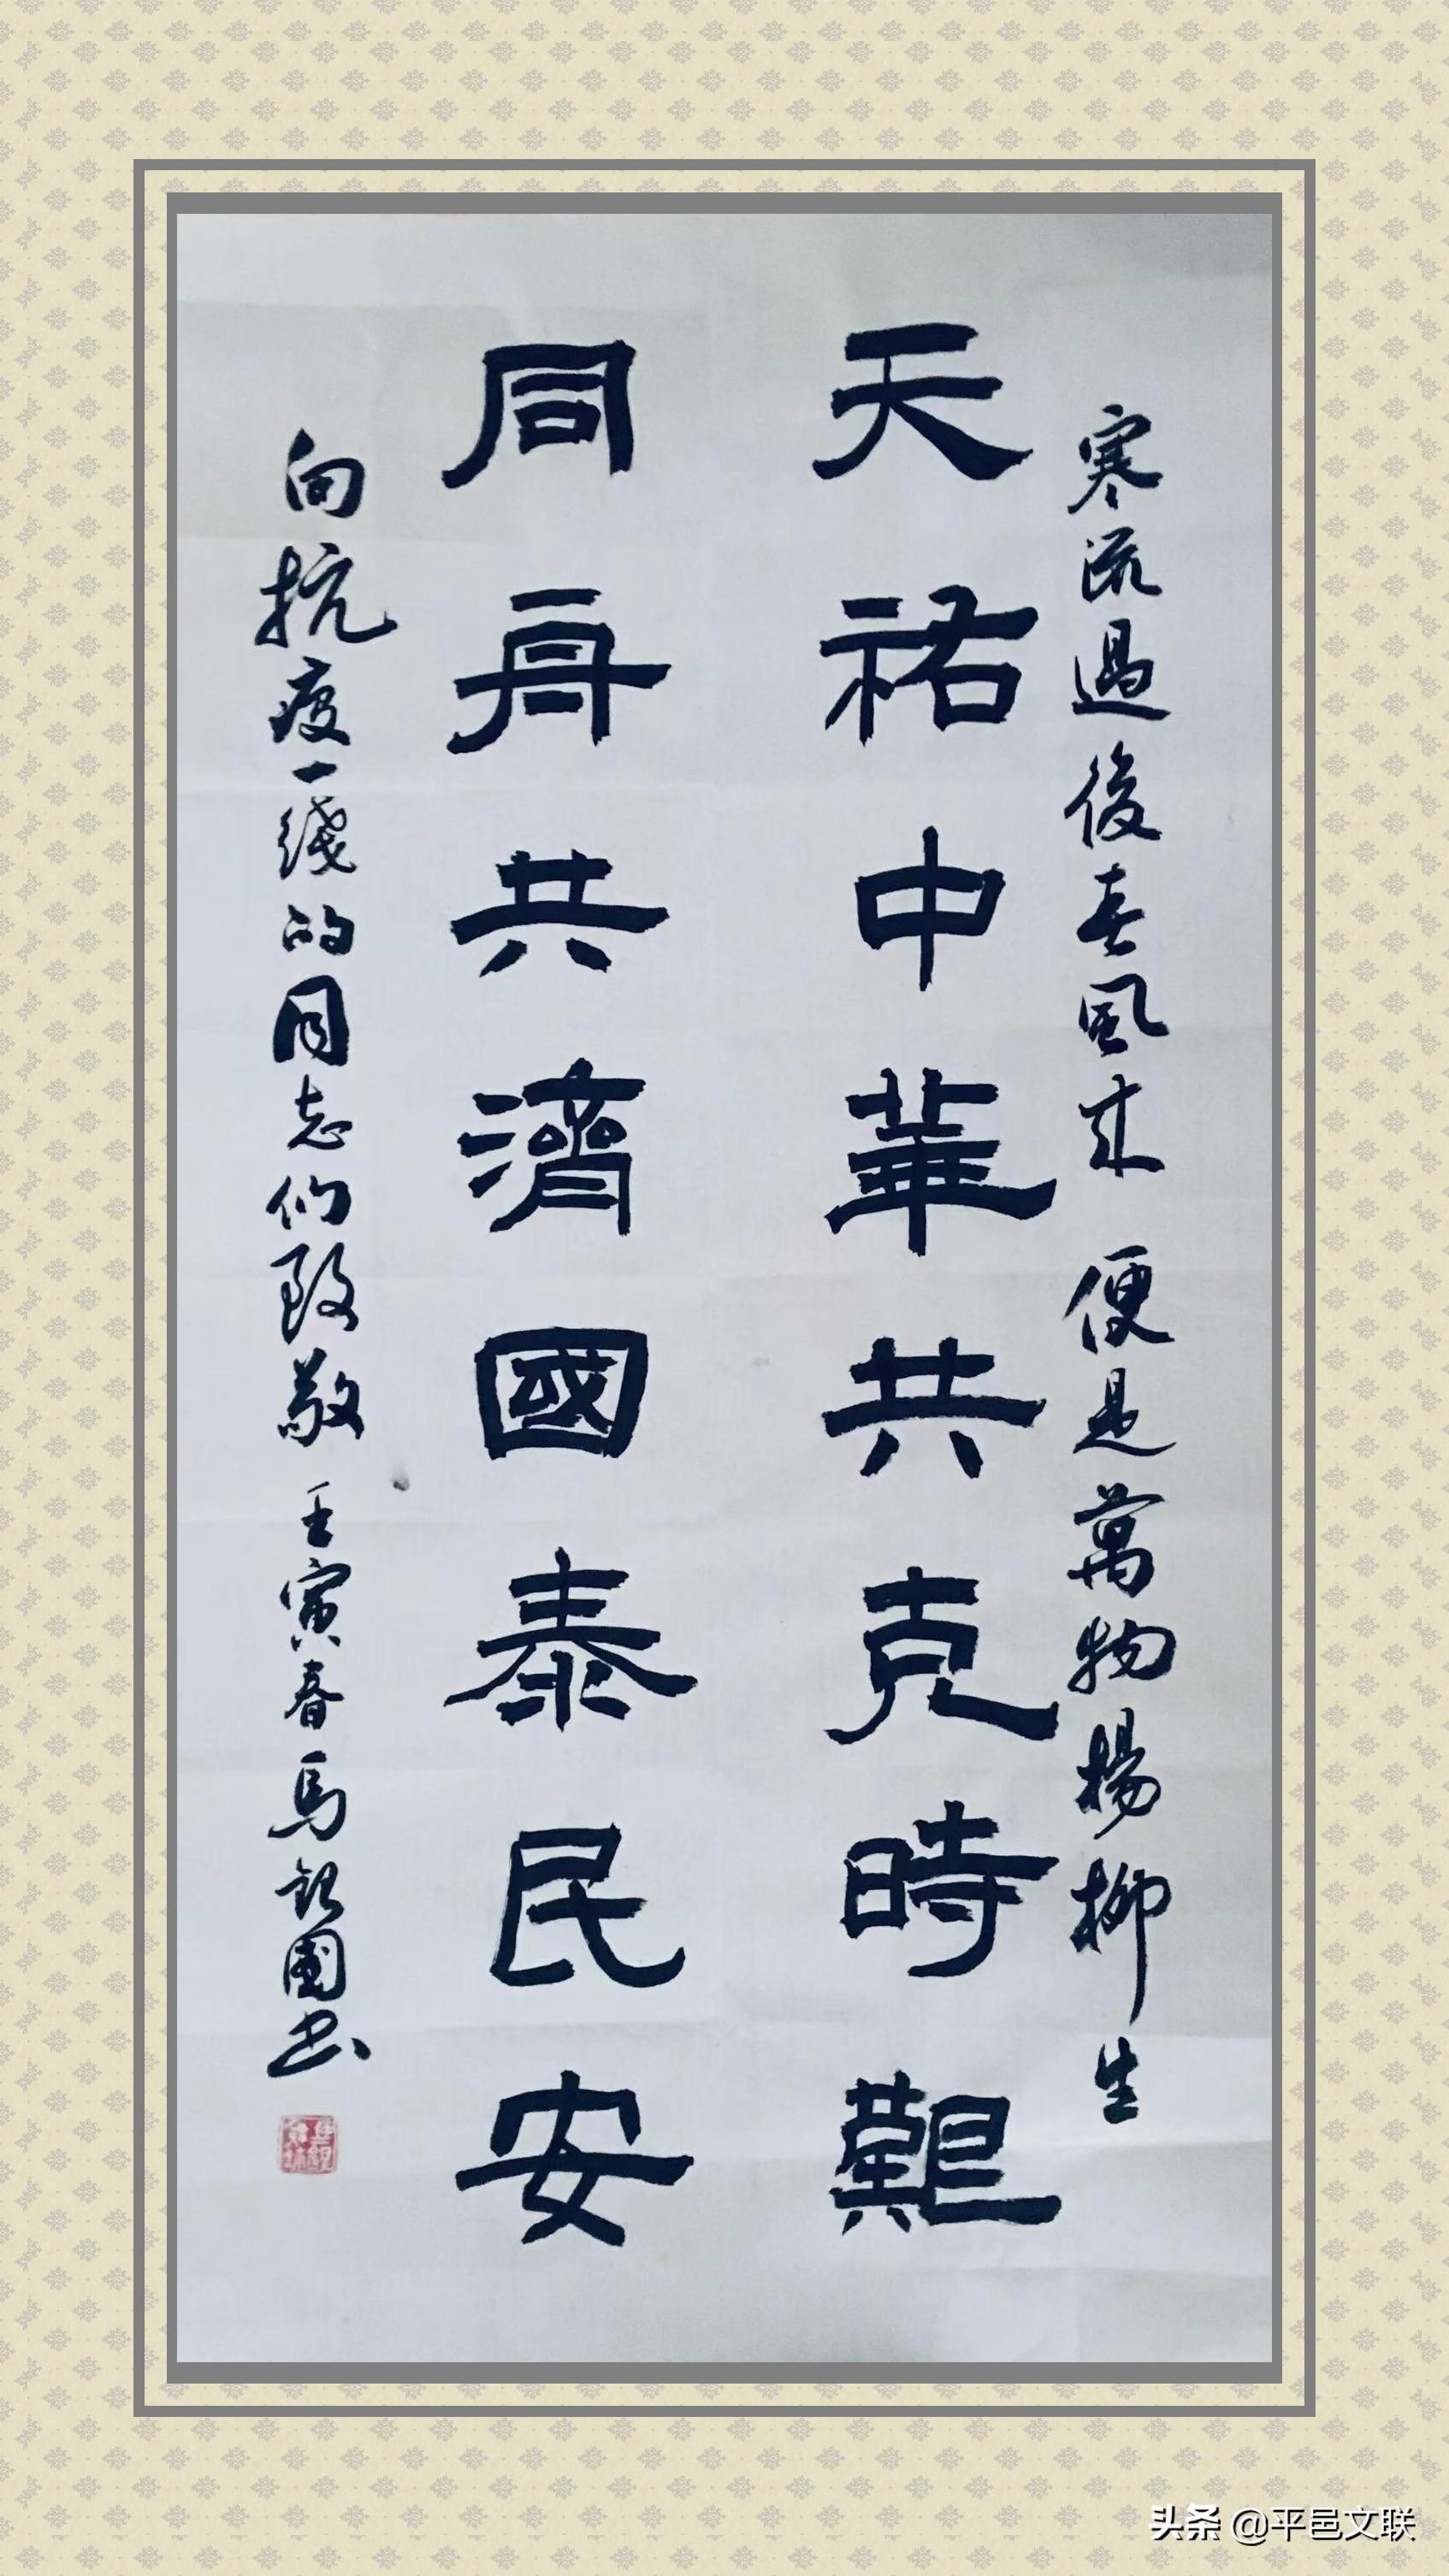 寒流過後春風來 便是萬物楊柳生
天祐中華共克時艱
同舟共濟國泰民安
向抗疫一綫的同志们致敬 壬寅春馬銀國书
头条 @平邑文联